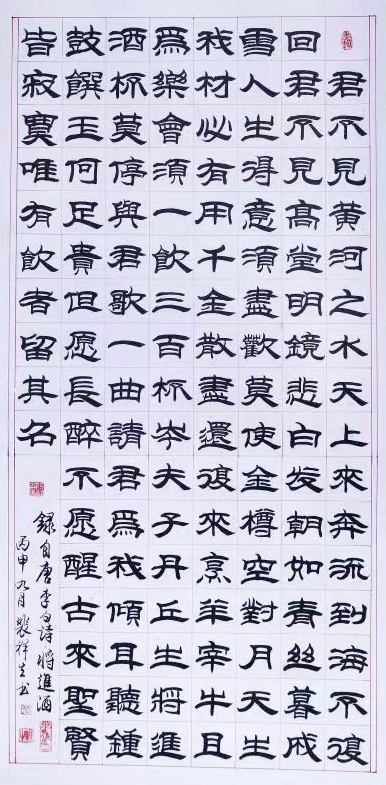 君不見黃河之水天上來奔流到海不復
回君不見高堂明鏡悲白发朝如青絲暮成
雪人生得意須盡歡莫使金樽空對月天生
我材必有用千金散盡還復來烹羊宰牛且
為樂會須一飲三百杯岑夫子丹丘生將進
酒杯莫停與君歌一曲請君為我傾耳聽鍾
鼓饌玉何足貴但愿長醉不愿醒古來聖賢
皆寂寞唯有飲者留其名
錄自唐李白詩將進酒
丙申九月裴祥